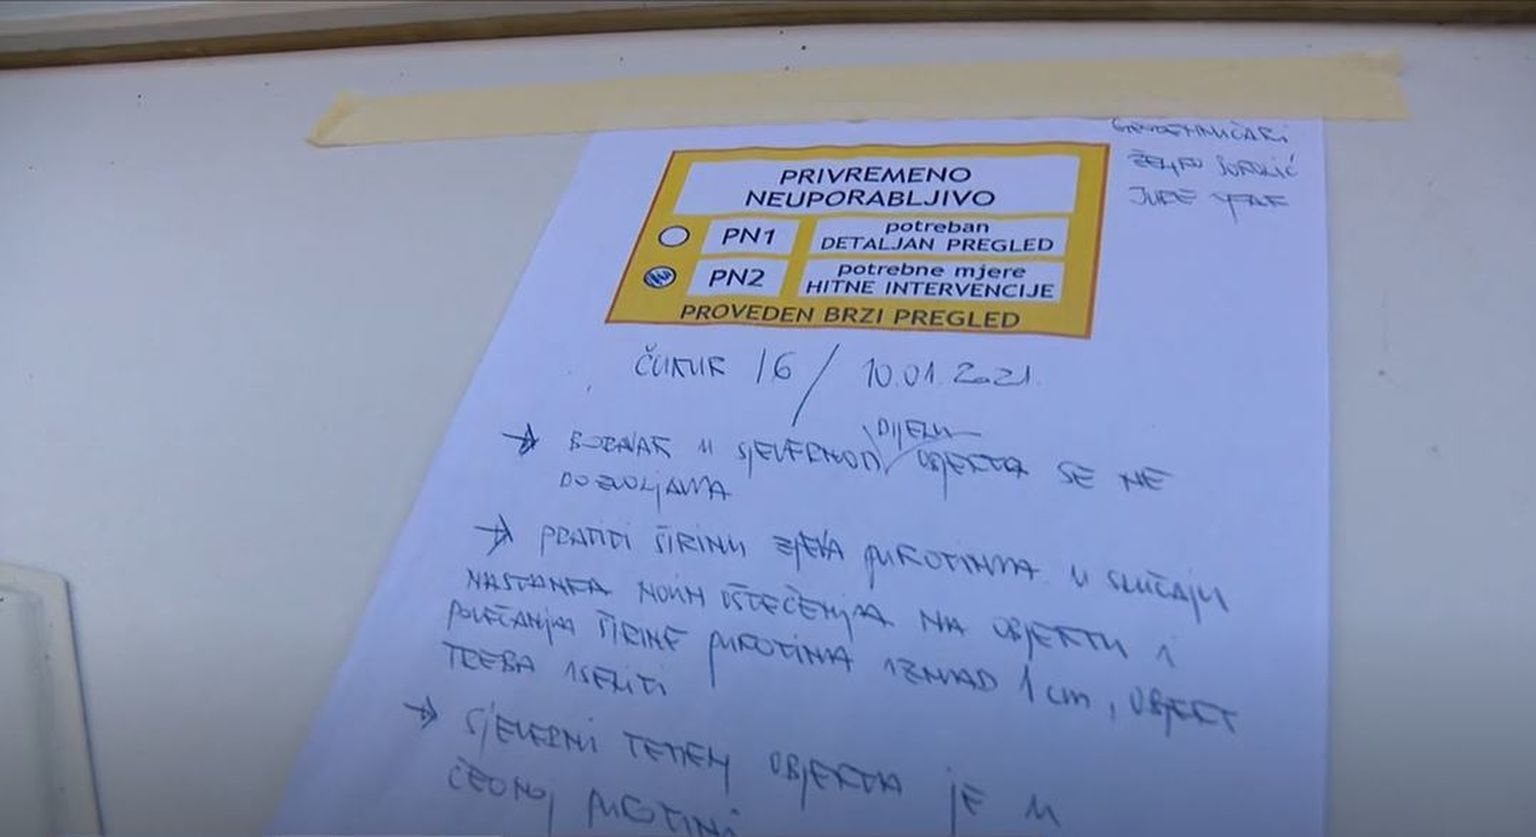 GEOTEHNIČARI
ŽELJKO
JURE
PRIVREMENO
NEUPORABLJIVO
PN1
potreban
DETALJAN PREGLED
PN2
potrebne mjere
HITNE INTERVENCIJE
PROVEDEN BRZI PREGLED
ČUKUR 16 / 10.01.2021.
DIJELU
→ BORAVAK U SJEVERNOM OBJEKTA SE NE
DOZVOLJAVA
→ PRATITI ŠIRINU ZJEVA PUKOTINA U SLUČAJU
NASTANKA NOVIH OŠTEĆENJA NA OBJEKTU I
POVEĆANJA ŠIRINE PUKOTINA IZNAD 1 cm, OBJEKT
TREBA ISELITI
→ SJEVERNI TEMELJ OBJEKTA JE U
PUKOTINI